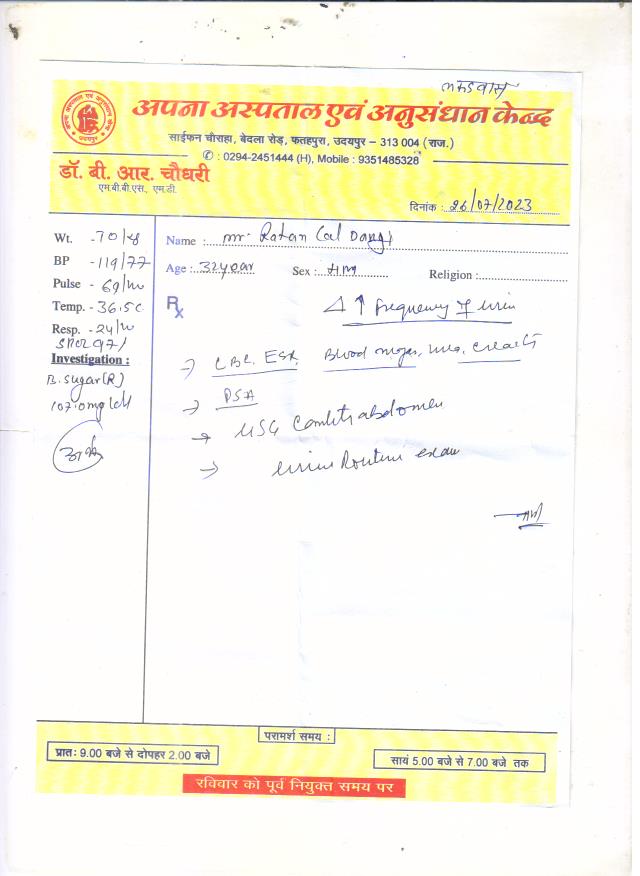 लकडवास
अपना अस्पताल एवं अनुसंधान केन्द्र
साईफन चौराहा, बेदला रोड़, फतहपुरा, उदयपुर – 313 004 (राज.)
✆ : 0294-2451444 (H), Mobile : 9351485328
डॉ. बी. आर. चौधरी
एम.बी.बी.एस., एम.डी.
दिनांक : 26/07/2023
Wt. - 70/
BP - 119/77
Pulse - 69/m
Temp. - 36.5c
Resp. - 24/m
SPO2 97/
Investigation :
B. Sugar (R)
107.0mg
Name : Mr. Ratan Lal Dangi
Age : 32year Sex : Religion :
Rx
Δ ↑ frequency of urin
→ CBC, ESR, Blood
→ PSA
→ USG abdomen
→ urine Routine
परामर्श समय :
प्रातः 9.00 बजे से दोपहर 2.00 बजे
सायं 5.00 बजे से 7.00 बजे तक
रविवार को पूर्व नियुक्त समय पर